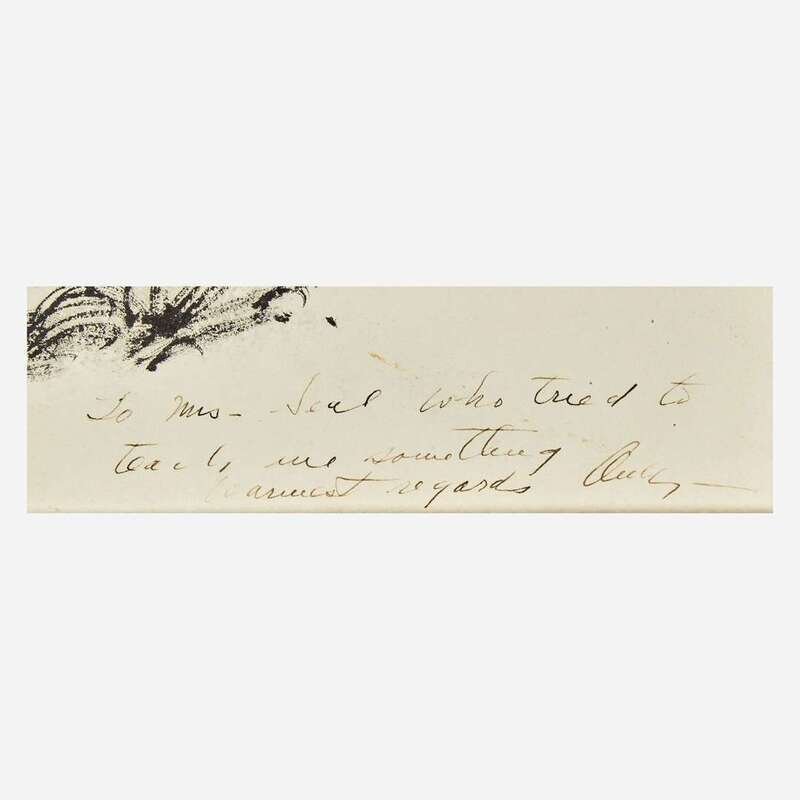 To Mrs- Seal who tried to
teach me something
Warmest regards